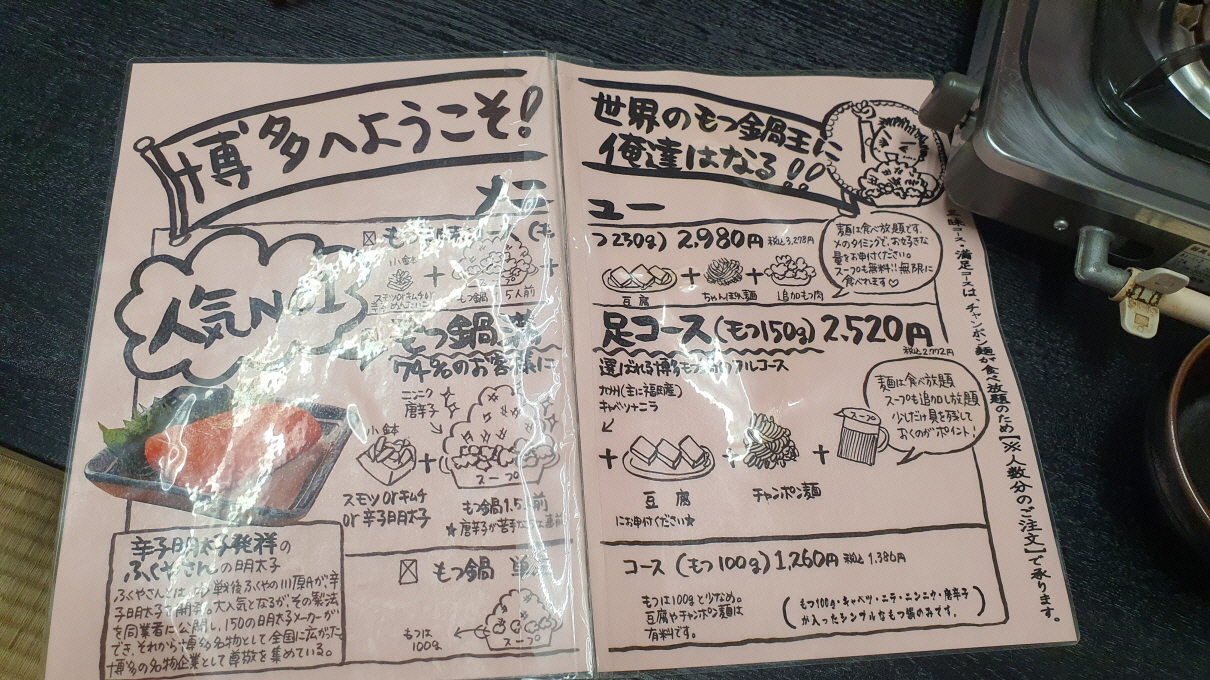 博多へようこそ!
世界のもつ鍋王に
俺達はなる!!
メニュー
人気No1
つ250g) 2,980円 税込3,278円
小鉢
スモツorキムチor
もつ鍋1.5人前
豆腐
ちゃんぽん麺
追加もつ肉
麺は食べ放題です。
〆のタイミングで、お好きな
量をお申付ください。
スープも無料!!無限に
食べれます♡
もつ鍋満足コース(もつ150g) 2,520円
税込2,772円
74%のお客様に
選ばれる博多もつ
フルコース
ニンニク
唐辛子
九州(主に福岡産)
キャベツ+ニラ
小鉢
スープ
スモツorキムチ
or辛子明太子
もつ鍋1.5人前
★唐辛子が苦手な
にお申付ください★
豆腐
チャンポン麺
スープ
麺は食べ放題
スープも追加し放題
少しだけ具を残して
おくのがポイント!
コース・満足コースは、チャンポン麺が食べ放題のため【※人数分のご注文】で承ります。
辛子明太子発祥の
ふくやさんの明太子
ふくやさんとは、
戦後ふくやの川原氏が辛
子明太子を開発。大人気となるが、その製法
を同業者に公開し、150の明太子メーカーが
でき、それから博多名物として全国に広がった
博多の名物企業として尊敬を集めている。
もつ鍋 単
コース (もつ100g) 1,260円 税込1,386円
もつは
100g
スープ
もつは100gと少なめ。
豆腐やチャンポン麺は
有料です。
(もつ100g・キャベツ・ニラ・ニンニク・唐辛子
が入ったシンプルなもつ鍋のみです。)